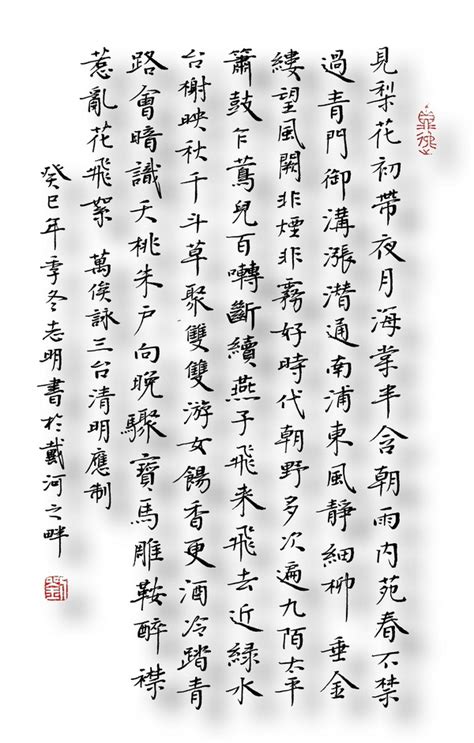 見梨花初帶夜月海棠半含朝雨内苑春不禁
過青門御溝漲潜通南浦東風靜細柳 垂金
縷望風闕非煙非霧好時代朝野多次遍九陌太平
簫鼓乍鶯兒百囀斷續燕子飛来飛去近緑水
台榭映秋千斗草聚雙雙游女餳香更酒冷踏青
路會暗識夭桃朱户向晚驟寶馬雕鞍醉襟
惹亂花飛絮 萬俟詠三台清明應制
癸巳年季冬志明書於戴河之畔
劉